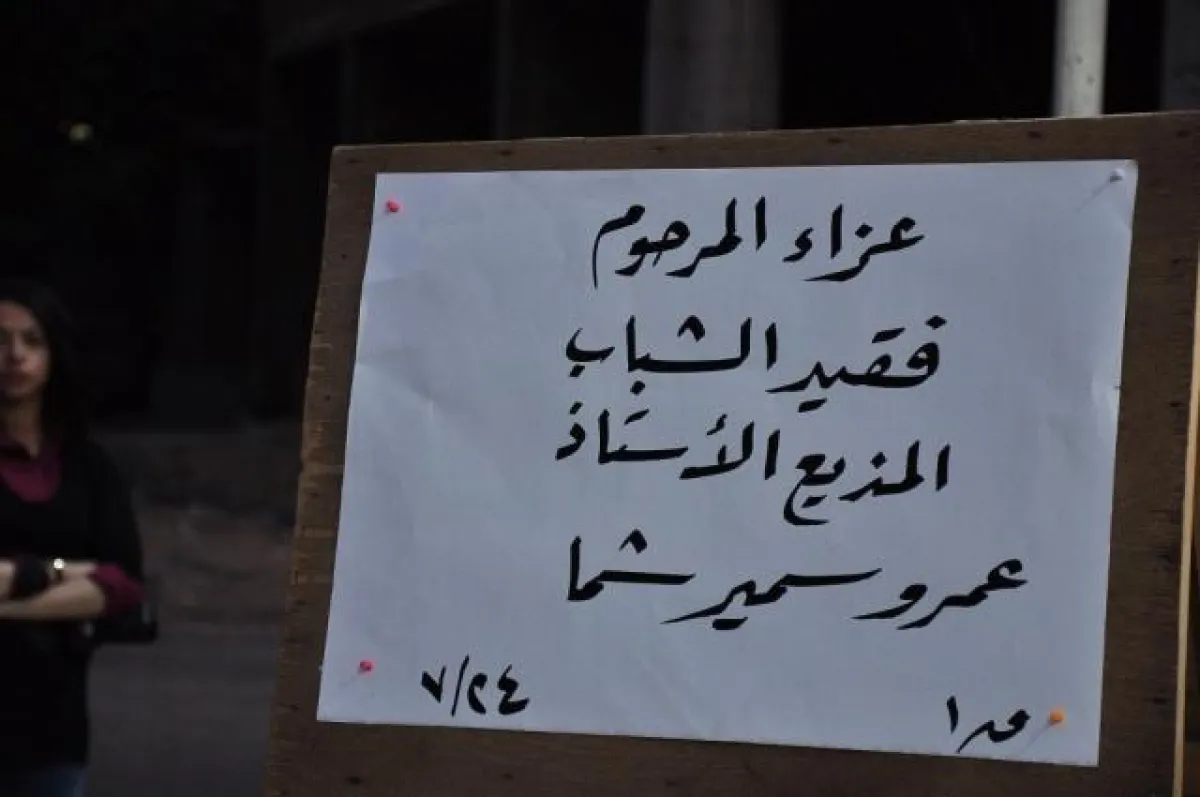 عزاء المرحوم
فقيد الشباب
المذيع الأستاذ
عمرو سمير شما
٧/٢٤